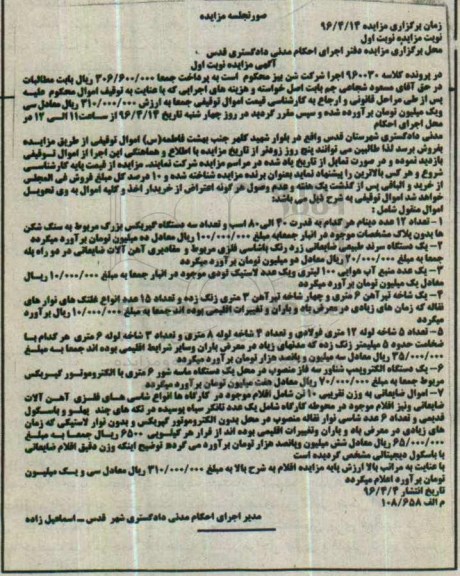 صورتجلسه مزایده
زمان برگزاری مزایده ۹۶/۴/۱۴
نوبت مزایده نوبت اول
محل برگزاری مزایده دفتر اجرای احکام مدنی دادگستری قدس
آگهی مزایده نوبت اول
در پرونده کلاسه ۹۶۰۰۳۰ اجرا شرکت شن بیز محکوم است به پرداخت جمعا ۳۰۶/۶۰۰/۰۰۰ ریال بابت مطالبات
در حق آقای مسعود شجاعی جم بابت اصل خواسته و هزینه های اجرایی که با عنایت به توقیف اموال محکوم علیه
پس از طی مراحل قانونی و ارجاع به کارشناسی قیمت اموال توقیفی جمعا به ارزش ۳۱۰/۰۰۰/۰۰۰ ریال معادل سی
ویک میلیون تومان برآورده شده و سپس مقرر گردید در روز چهار شنبه تاریخ ۹۶/۴/۱۴ از ساعت ۱۱ الی ۱۲ در
محل اجرای احکام
مدنی دادگستری شهرستان قدس واقع در بلوار شهید کلهر جنب بهشت فاطمه(س) اموال توقیفی از طریق مزایده
بفروش برسد لذا طالبین می توانند پنج روز زودتر از تاریخ مزایده با اطلاع و هماهنگی این اجرا از اموال توقیفی
بازدید نموده و در صورت تمایل از تاریخ یاد شده در مراسم مزایده شرکت نمایند. مزایده از قیمت پایه کارشناسی
شروع و هر کس بالاترین را پیشنهاد نماید بعنوان برنده مزایده شناخته شده و ۱۰ درصد کل مبلغ فروش فی المجلس
از خرید و الباقی پس از گذشت یک هفته و عدم وصول هر گونه اعتراض از خریدار اخذ و کلیه اموال به وی تحویل
خواهد شد اموال توقیفی به شرح ذیل می باشد:
اموال منقول شامل :
۱- تعداد ۱۲ عدد دینام هر کدام به قدرت ۴۰ الی ۸۰ اسب و تعداد سه دستگاه گیربکس بزرگ مربوط به سنگ شکن
ها بدون پلاک مشخصات موجود در انبار جمعا به مبلغ ۱۰۰/۰۰۰/۰۰۰ ریال معادل ده میلیون تومان برآورد میگردد
۲- یک دستگاه سرند طبیعی ضایعاتی زرد رنگ باشاسی فلزی مربوط و مقادیری آهن آلات ضایعاتی در دو راه پله
جمعا به مبلغ ۲۰/۰۰۰/۰۰۰ ریال معادل دو میلیون تومان برآورد میگردد
۳- یک عدد منبع آب هوایی ۱۰۰ لیتری ویک عدد لاستیک لودی موجود در انبار جمعا به مبلغ ۱۰/۰۰۰/۰۰۰ ریال
معادل یک میلیون تومان برآورد میگردد
۴- یک شاخه تیر آهن ۶ متری و چهار شاخه تیرآهن ۳ متری زنگ زده و تعداد ۱۵ عدد انواع غلتک های نوار های
نقاله که زمان های زیادی در معرض باد و باران و تغییرات اقلیمی بوده اند جمعا به مبلغ ۱۰/۰۰۰/۰۰۰ ریال برآورد
میگردد
۵- تعداد ۵ شاخه لوله ۱۲ متری فولادی و تعداد ۴ شاخه لوله ۸ متری و تعداد ۳ شاخه لوله ۶ متری هر کدام با
ضخامت حدود ۵ میلیمتر زنگ زده که مدتهای زیاد در معرض باران وسایر شرایط اقلیمی بوده اند جمعا به مبلغ
۳۵/۰۰۰/۰۰۰ ریال معادل سه میلیون و پانصد هزار تومان برآورد میگردد
۶- یک دستگاه الکتروپمپ شناور سه فاز منصوب در محل یک دستگاه ماسه شور ۶ متری با الکتروموتور گیربکس
مربوط جمعا به مبلغ ۷۰/۰۰۰/۰۰۰ ریال معادل هفت میلیون تومان برآورد میگردد
۷- اموال ضایعاتی به وزن تقریبی ۱۰ تن شامل اقلام موجود در کارگاه ها انواع شاسی های فلزی آهن آلات
ضایعاتی ونیز اقلام موجود در محوطه کارگاه شامل یک عدد تانکر سیاه پوسیده در تکه های چند پهلو و باسکول
قدیمی و تعداد ۶ عدد شاسی نوار نقاله منصوب در محل بدون الکتروموتور گیربکس و بدون نوار لاستیکی که زمان
های زیادی در معرض باد و باران وتغییرات اقلیمی بوده اند از قرار هر کیلویی ۶۵۰۰ ریال جمعا به مبلغ
۶۵/۰۰۰/۰۰۰ ریال معادل شش میلیون وپانصد هزار تومان برآورد می گردد توضیح اینکه وزن دقیق اقلام ضایعاتی
با باسکول دیجیتالی مشخص گردیده است
با عنایت به مراتب بالا ارزش پایه مزایده اقلام به شرح بالا به مبلغ ۳۱۰/۰۰۰/۰۰۰ ریال معادل سی و یک میلیون
تومان برآورد اعلام میگردد
تاریخ انتشار ۹۶/۴/۴
م الف ۱۰۸/۶۵۸
مدیر اجرای احکام مدنی دادگستری شهر قدس ــ اسماعیل زاده